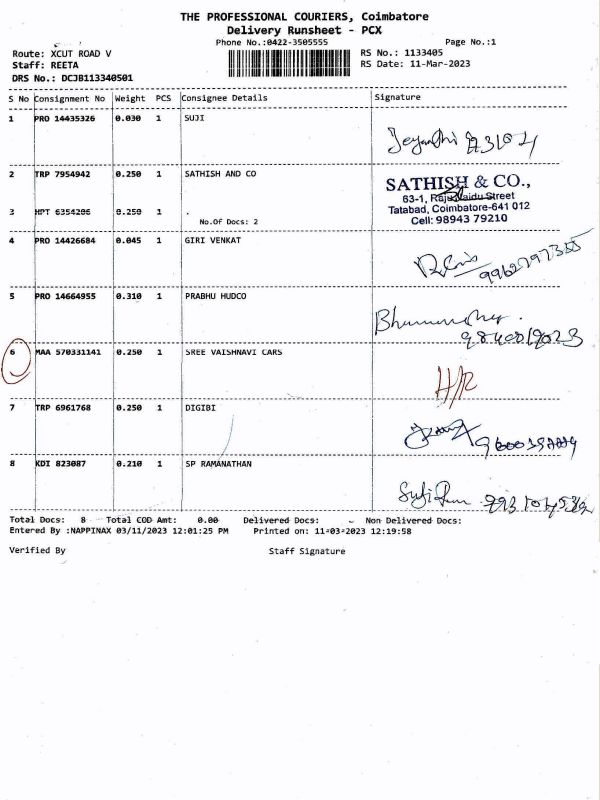 THE PROFESSIONAL COURIERS, Coimbatore
Delivery Runsheet - PCX
Phone No.:0422-3505555 Page No.:1
Route: XCUT ROAD V RS No.: 1133405
Staff: REETA RS Date: 11-Mar-2023
DRS No.: DCJB113340501
S No Consignment No Weight PCS Consignee Details Signature
1 PRO 14435326 0.030 1 SUJI
2 TRP 7954942 0.250 1 SATHISH AND CO
SATHISH & CO.,
63-1, Raju Naidu Street
Tatabad, Coimbatore-641 012
Cell: 98943 79210
3 HPT 6354286 0.250 1 .
No.Of Docs: 2
4 PRO 14426684 0.045 1 GIRI VENKAT
5 PRO 14664955 0.310 1 PRABHU HUDCO
6 MAA 570331141 0.250 1 SREE VAISHNAVI CARS
H/R
7 TRP 6961768 0.250 1 DIGIBI
8 KDI 823087 0.210 1 SP RAMANATHAN
Total Docs: 8 Total COD Amt: 0.00 Delivered Docs: Non Delivered Docs:
Entered By :NAPPINAX 03/11/2023 12:01:25 PM Printed on: 11-03-2023 12:19:58
Verified By Staff Signature